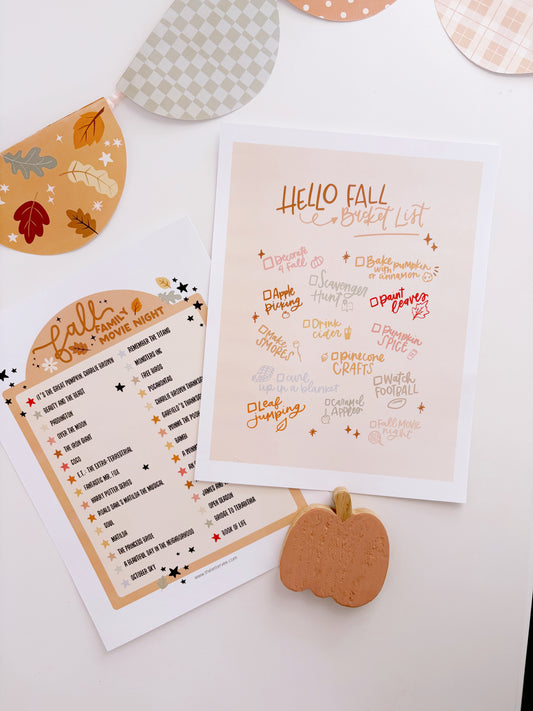 HELLO FALL
Bucket List
Decorate
4 Fall
Bake pumpkin
with
or cinnamon
Apple
picking
Scavenger
Hunt
Paint
leaves
Make
SMORES
Drink
cider
Pumpkin
SPICE
pinecone
CRAFTS
curl
up in a blanket
Watch
FOOTBALL
Leaf
Jumping
caramel
Apples
Fall Movie
night
fall
FAMILY
MOVIE NIGHT
IT'S THE GREAT PUMPKIN, CHARLIE BROWN
BEAUTY AND THE BEAST
PADDINGTON
OVER THE MOON
THE IRON GIANT
COCO
E.T. - THE EXTRA-TERRESTRIAL
FANTASTIC MR. FOX
HARRY POTTER SERIES
ROALD DAHL'S MATILDA THE MUSICAL
SOUL
MATILDA
THE PRINCESS BRIDE
A BEAUTIFUL DAY IN THE NEIGHBORHOOD
OCTOBER SKY
REMEMBER THE TITANS
MONSTERS INC
FREE BIRDS
POCAHONTAS
CHARLIE BROWN THANKSG
GARFIELD'S THANKSG
WINNIE THE POO
BAMBI
A WINN
AN
JAMES AND
OPEN SEASON
BRIDGE TO TERABITHIA
BOOK OF LIFE